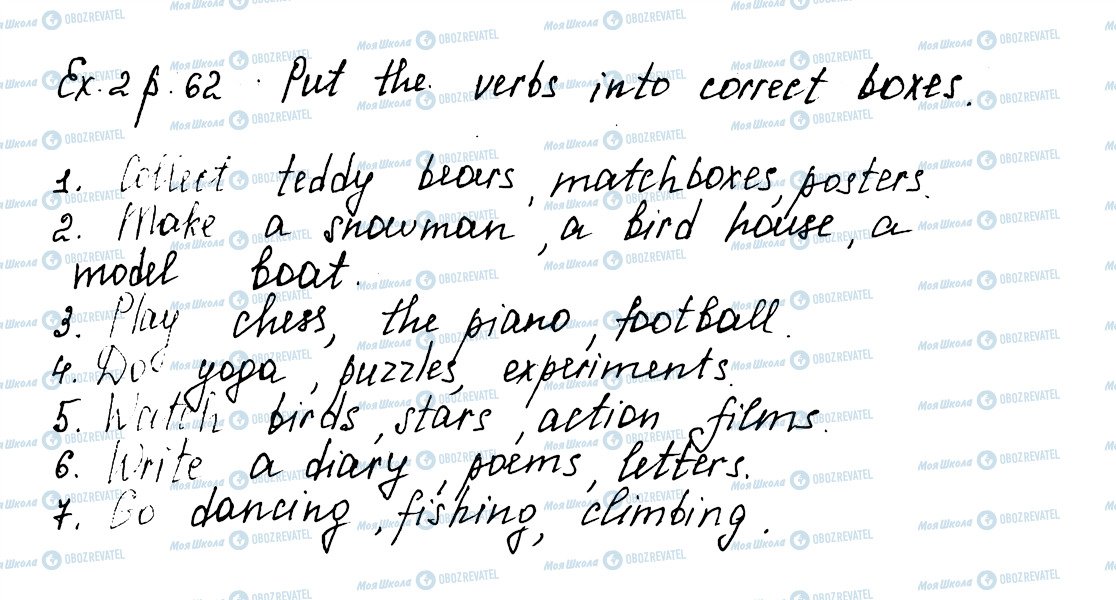 Ex. 2 p. 62. Put the verbs into correct boxes.
1. Collect teddy bears, matchboxes, posters.
2. Make a snowman, a bird house, a
model boat.
3. Play chess, the piano, football.
4. Do yoga, puzzles, experiments.
5. Watch birds, stars, action films.
6. Write a diary, poems, letters.
7. Go dancing, fishing, climbing.